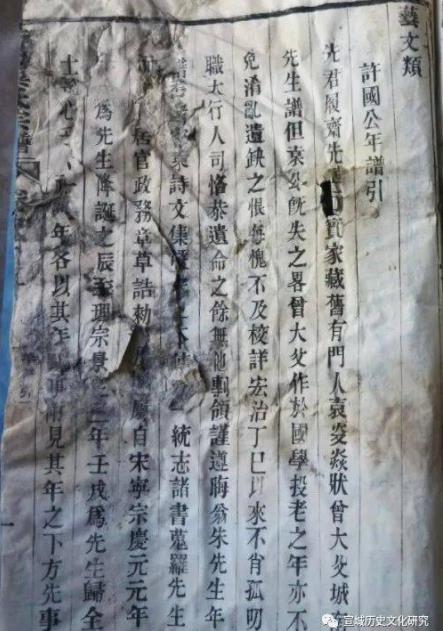 藝文類
許國公年譜引
先君履齋先實家藏舊有門人焱狀曾大父城
先生譜但袁公旣失之畧曾大父作於國學投老之年亦不
免淆亂遺缺之恨每愧不及校詳宏治丁巳以來不肖孤叨
職太行人司恪恭遺命之餘無他領謹遵晦翁朱先生年
詩文集統志諸書蒐羅先生
居官政務章草誥勅慶自宋寧宗慶元元年
為先生降誕之辰至理宗景年壬戌爲先生歸全
十年各以其年見其年之下方先事
宣城历史文化研究